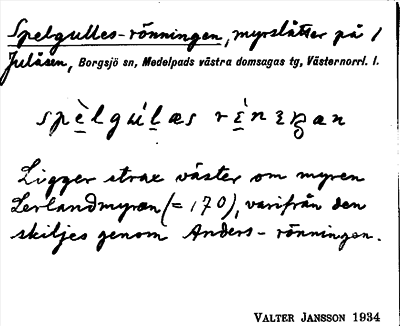 Spelgulles-rönningen, myrslåtter på /
Julåsen, Borgsjö sn, Medelpads västra domsagas tg, Västernorrl. l.
spèlgúlæs rènɛŋan
Ligger strax väster om myren
Lerlandmyran (= 170), varifrån den
skiljes genom Anders-rönningen.
VALTER JANSSON 1934